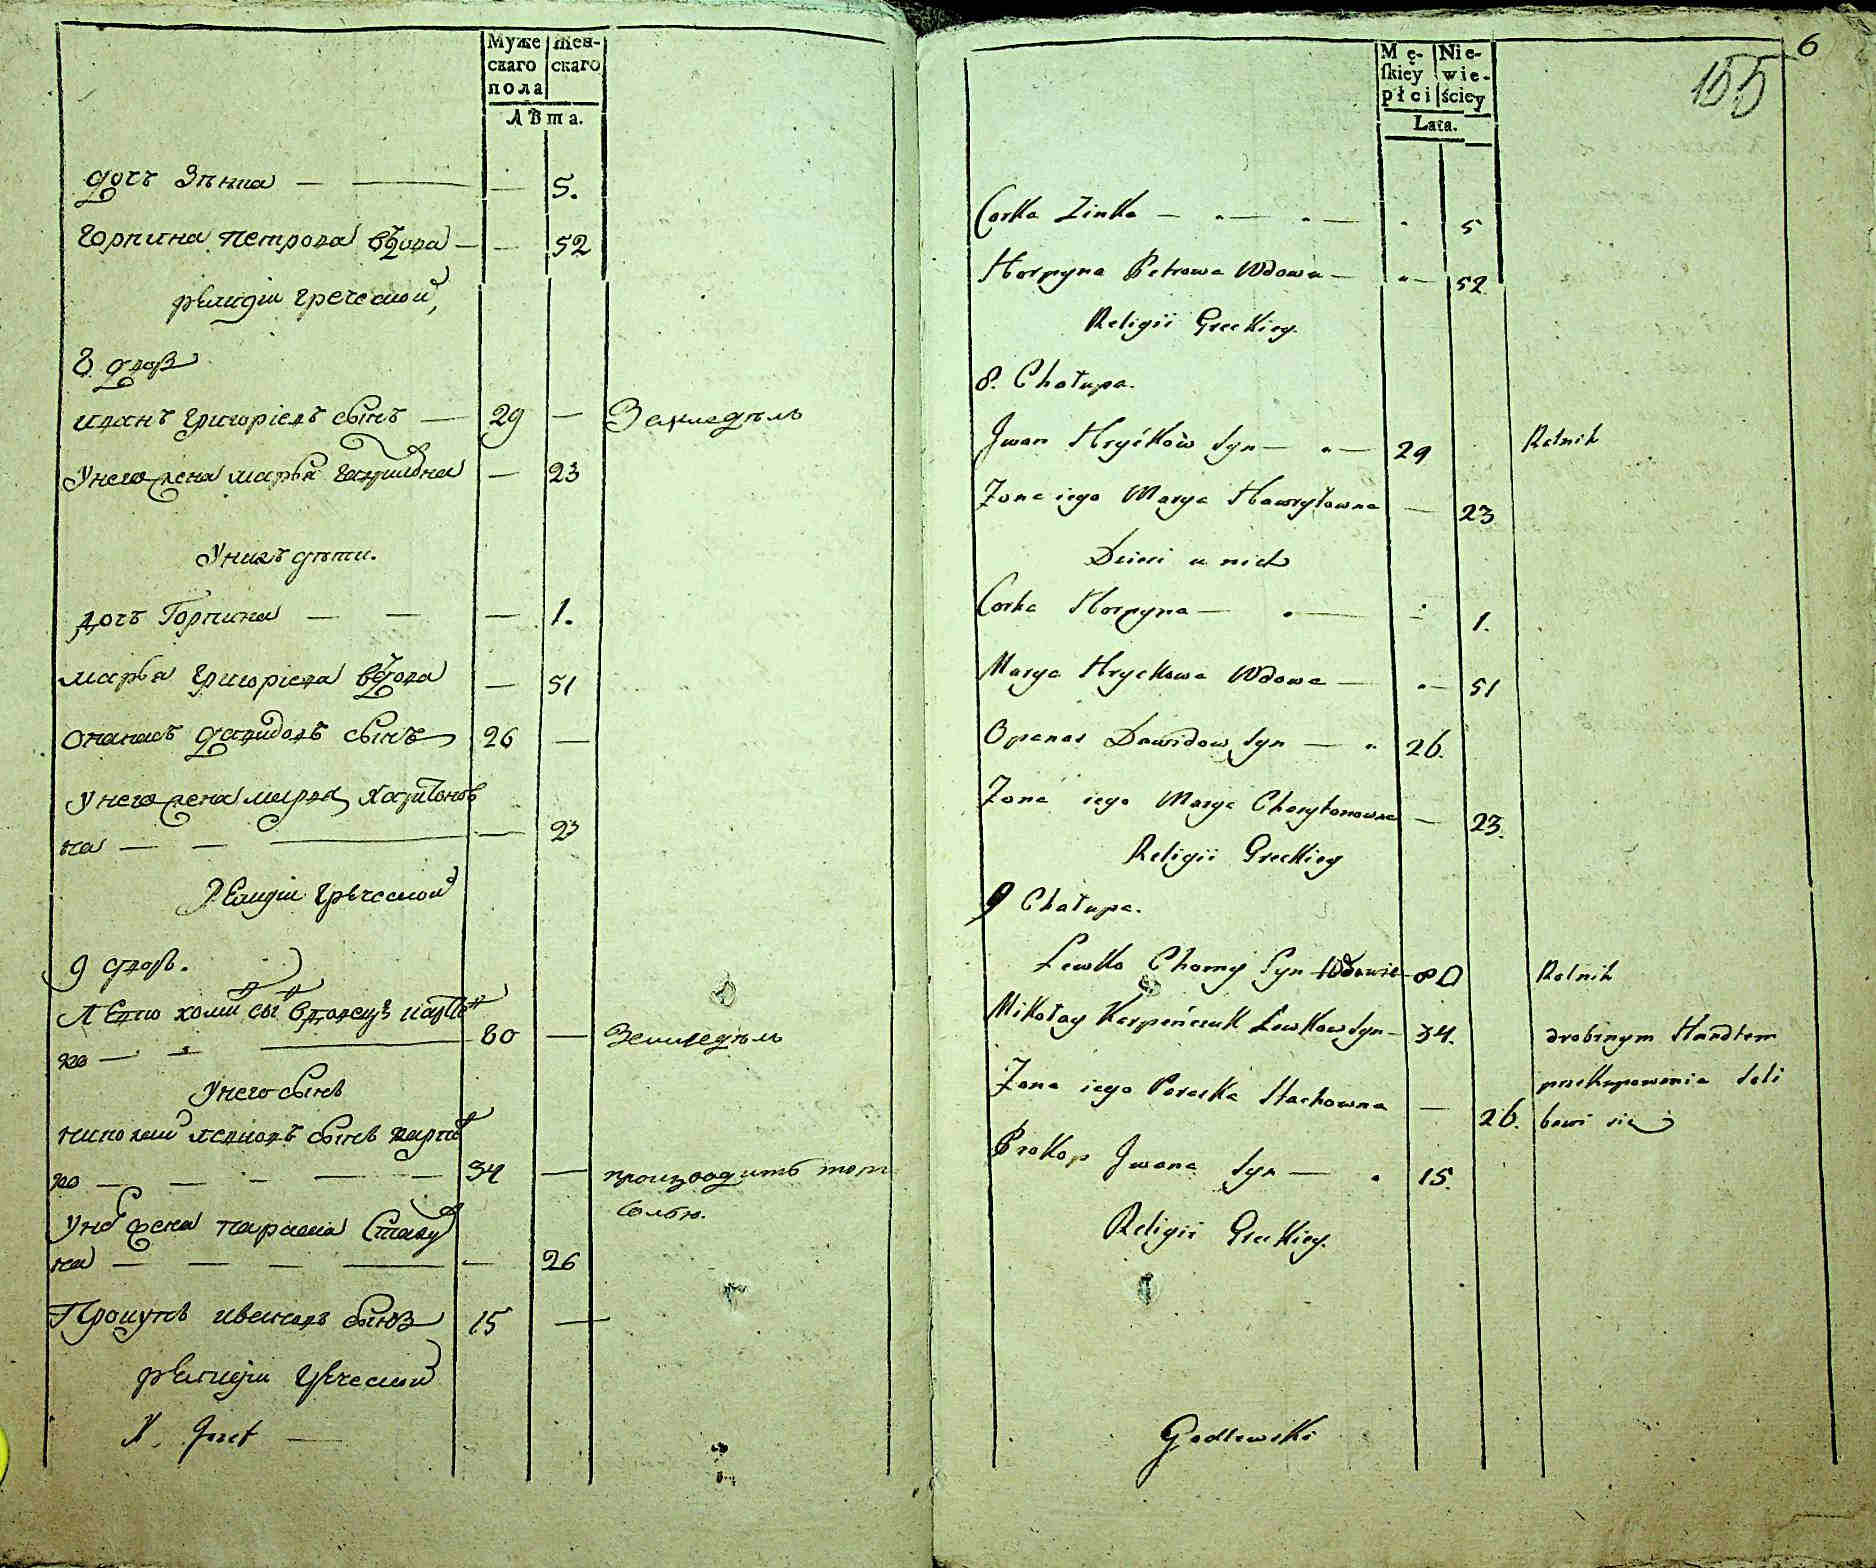 Муже Жен-
скаго скаго
пола
Лѣта.
дочъ Зѣнка — — — 5.
Горпина Петрова вдова — — 52
религіи греческой,
8 дворъ
иванъ григоріевъ сынъ — 29 — Земледѣль
У него жена марья гаврилона — 23
У нихъ дѣти.
дочъ Горпина — — — 1.
марья григоріева вдова — 51
опанасъ давидовъ сынъ 26 —
у него жена марья харитонов
на — — — — 23
религіи греческой
9 дворъ.
Левко
ко — — 80 — Земледѣль
У него сынъ
николай левковъ сынъ карпѣ
ко — — — — 34 — производитъ торг
солью.
жена параска Стахов
на — — — — — 26
Прокупъ ивановъ сынъ 15 —
религіи греческой
6
155
Mę- Nie-
ſkiey wie-
płci ściey
Lata.
Corka Zinka — — — 5
Horpyna Petrowa Wdowa — — 52
Religii Greckiey.
8. Chałupa.
Jwan Hryćków Syn — — 29 Rolnik
Zona iego Marya Hawryłowna — 23
Dzieci u nich
Corka Horpyna — — 1.
Marya Hryckowa Wdowa — — 51
Opanas Dawidow Syn — 26.
Zona iego Marya Charytonowna — 23.
Religii Greckiey
9 Chałupa.
Lewko Chomy Syn Wdowiec 80 Rolnik
Mikołay Karpeńczuk Lewkow Syn — 34. drobnym Handlem
Zona iego Paraska Stachowna — 26. przekupowania Soli
bawi się
Prokop Jwana Syn — 15.
Religii Greckiey.
Godlewski